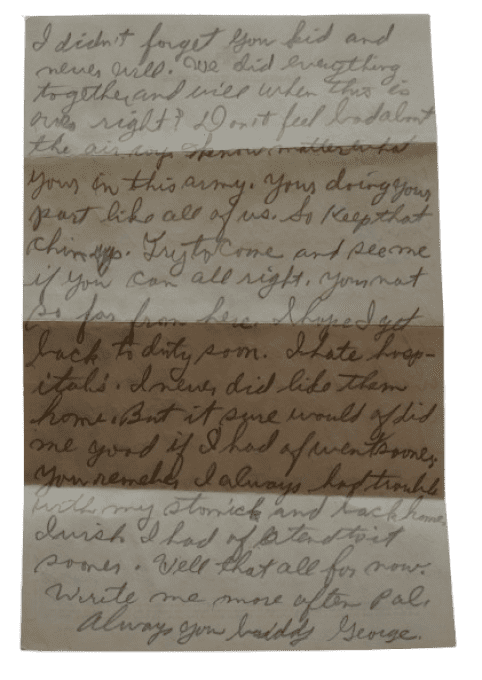 I didn't forget you kid and
never will. We did everything
together and will when this is
over right? Don't feel bad about
the air corp know matter what
your in this army. Your doing your
part like all of us. So keep that
chin up. Try to come and see me
if you can all right. Your not
so far from here. I hope I get
back to duty soon. I hate hosp-
itals. I never did like them
home. But it sure would of did
me good if I had of went sooner.
You remeber I always had trouble
with my stomick and back home
I wish I had of atend to it
sooner. Well that all for now.
Write me more often pal.
Always you buddy George.